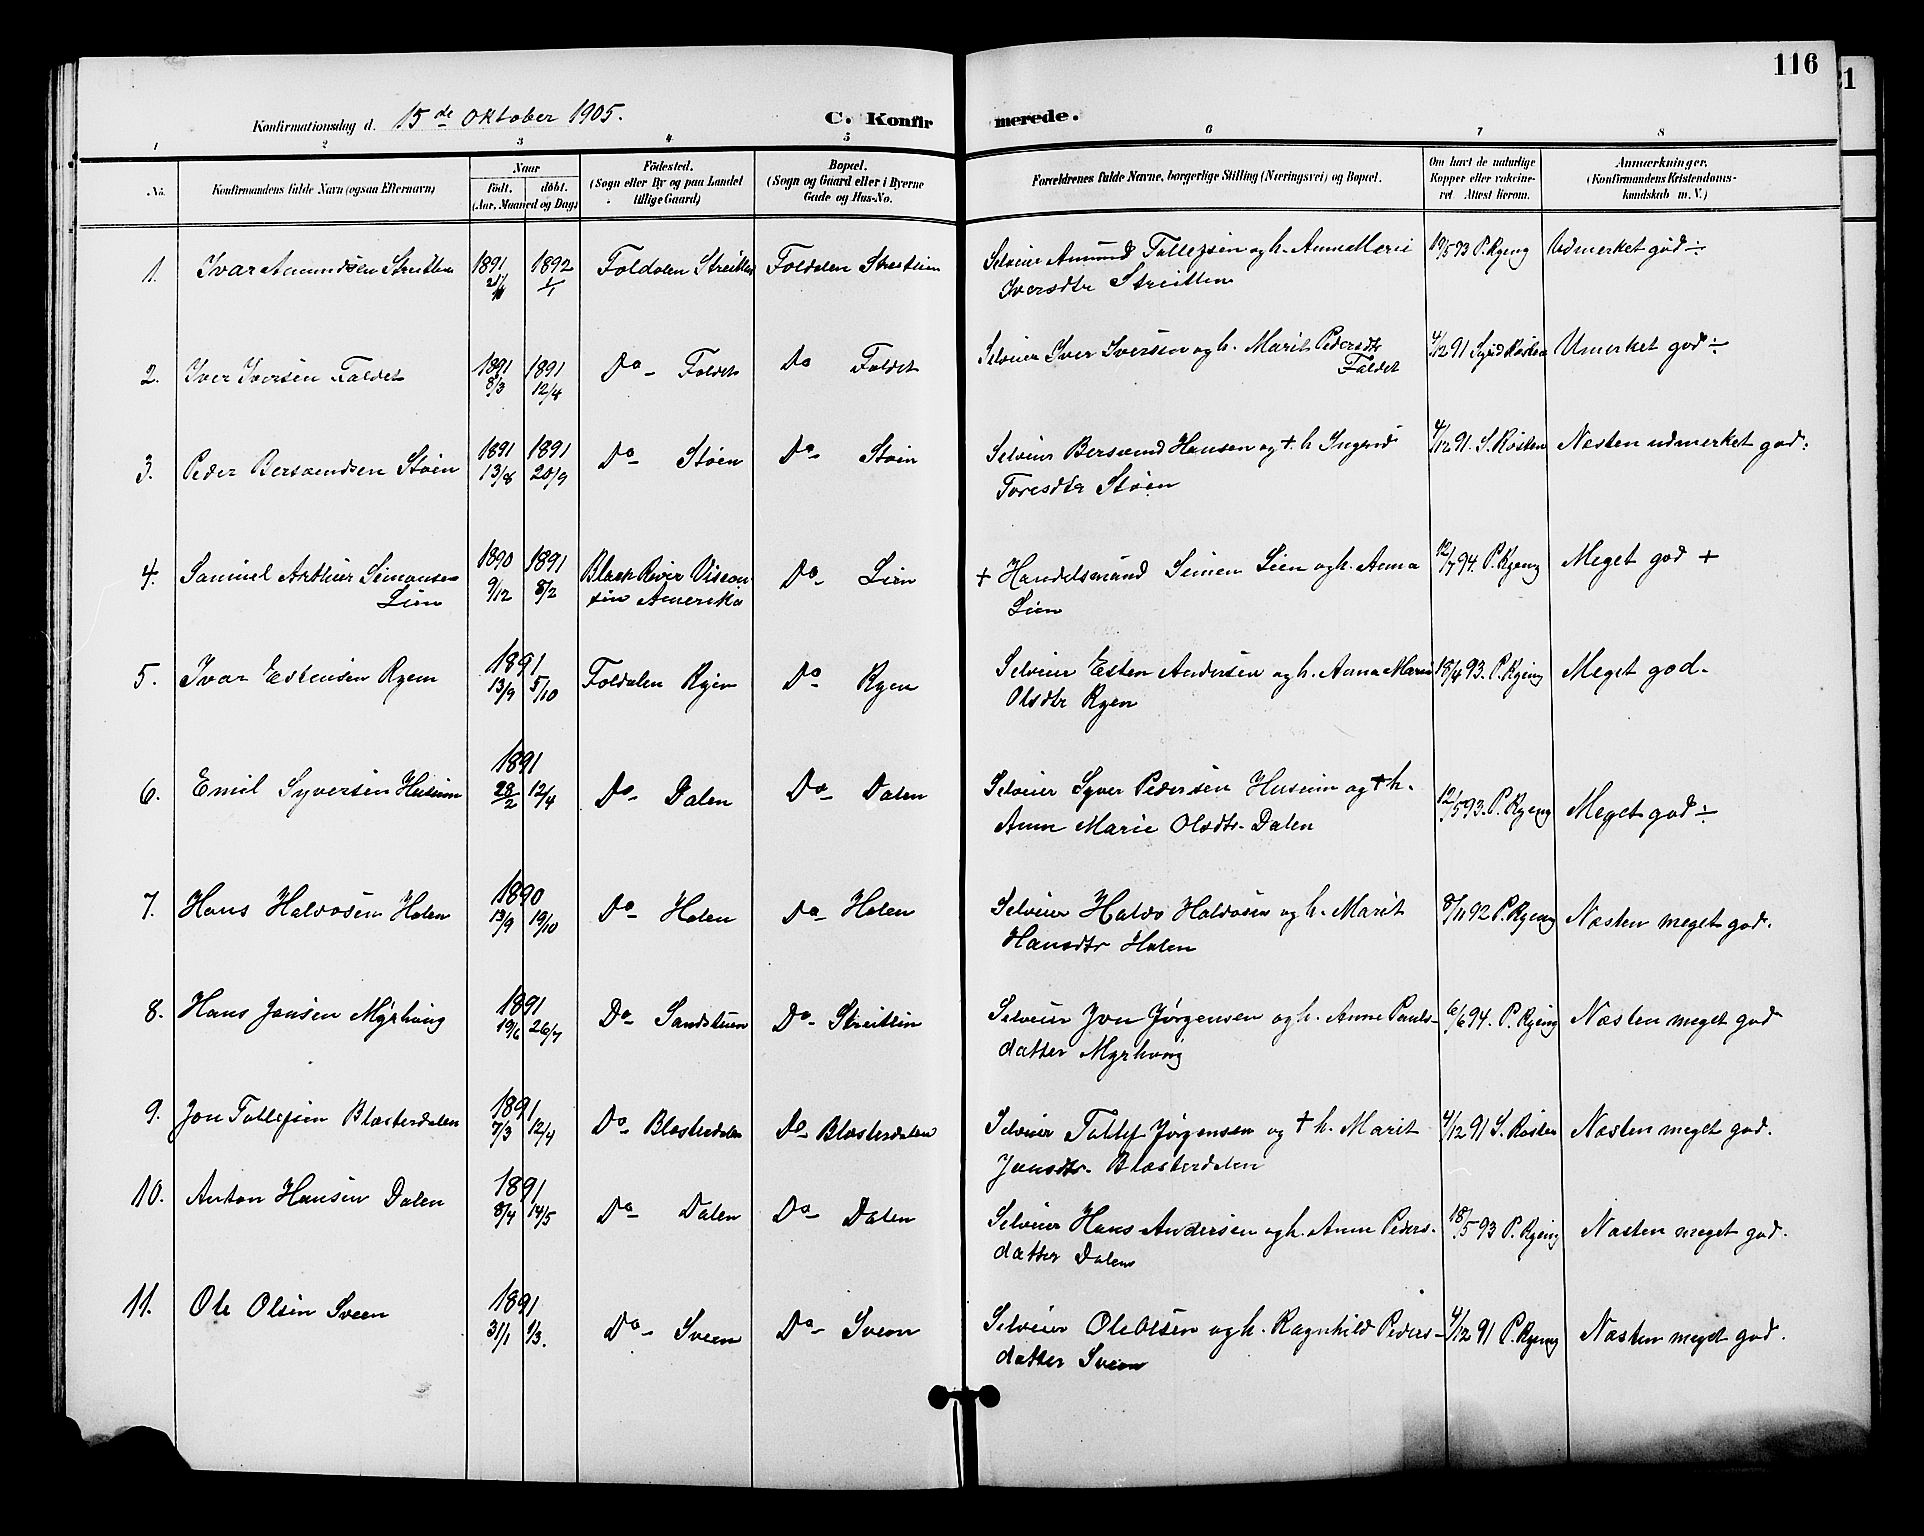 116
21
Konfirmationsdag d. 15de Oktober 1905.
C. Konfirmerede.
1 2 3 4 5 6 7 8
No.
Konfirmandens fulde Navn (ogsaa Efternavn)
Naar
født. døbt.
(Aar, Maaned og Dag)
Födested.
(Sogn eller By og paa Landet
tillige Gaard)
Bopæl.
(Sogn og Gaard eller i Byerne
Gade og Hus-No.
Forældrenes fulde Navne, borgerlige Stilling (Næringsvei) og Bopæl.
Om havt de naturlige
Kopper eller vakcine-
ret. Attest herom.
Anmærkninger.
(Konfirmandens Kristendoms-
kundskab m. V.)
1. Ivar Amundsen Streitlien 1891 1892 1/1 Foldalen Streitlien Foldalen Streitlien Selveier Amund Tollefsen og h. Anne Marie
Iversdtr Streitlien
5 93 P. Ryeng Udmerket god ÷
2. Iver Iversen Faldet 1891 8/3 1891 12/4 Do- Faldet Do Faldet Selveier Iver Iversen og h. Marit Pedersdtr
Faldet
4/12 91 Røsten Umerket god ÷
3. Peder Bersvendsen Støen 1891 13/8 1891 20/9 Do- Støen Do- Støen Selveier Bersvend Hansen og + h Ingrid
Toresdtr Støen
4/12 91. S. Røsten Næsten udmerket god.
4. Samuel Arthur Simonsen
Lien
1890 9/12 1891 8/2 Black River Viscon
sin Amerika
Do- Lien + Handelsmand Simen Lien og h. Anna
Lien
12/7 94. P. Ryeng Meget god +
5. Ivar Estensen Ryen 1891 13/9 5/10 Foldalen Ryen Do- Ryen Selveier Esten Andersen og h. Anna Marie
Olsdtr Ryen
18/4 93. P. Ryeng Meget god.
6. Emil Syversen Husum 1891 28/2 12/4 Do- Dalen Do- Dalen Selveier Syver Pedersen Husum og + h.
Anne Marie Olsdtr. Dalen
12/5 93. P. Ryeng Meget god ÷
7. Hans Halvosen Holen 1890 13/9 19/10 Do- Holen Do- Holen Selveier Halvo Halvosen og h. Marit
Hansdtr Holen
8/11 92 P. Ryeng Næsten meget god.
8. Hans Jonsen Myrhaug 1891 19/6 26/7 Do- Sandstuen Do- Streitlien Selveier Jon Jørgensen og h. Anne Pauls-
datter Myrhaug
6/6 94. P. Ryeng Næsten meget god
9. Jon Tollefsen Blæsterdalen 1891 7/3 12/4 Do- Blæsterdalen Do- Blæsterdalen Selveier Tollef Jørgensen og + h. Marit
Jonsdtr. Blæsterdalen
4/12 91 S. Røsten Næsten meget god.
10. Anton Hansen Dalen 1891 8/4 14/5 Do- Dalen Do- Dalen Selveier Hans Andersen og h. Anne Peders-
datter Dalen
18/5 93 P. Ryeng Næsten meget god.
11. Ole Olsen Sveen 1891 31/1 1/3. Do- Sveen Do- Sveen Selveier Ole Olsen og h. Ragnhild Peders-
datter Sveen
4/12 91 P. Ryeng Næsten meget god.